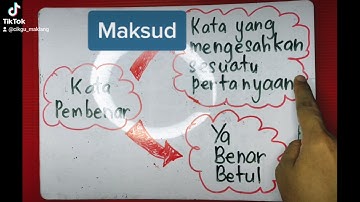 TikTok
@cikgu_maklang
Maksud
Kata
Pembenar
Kata yang
mengesahkan
sesuatu
pertanyaan
Ya
Benar
Betul